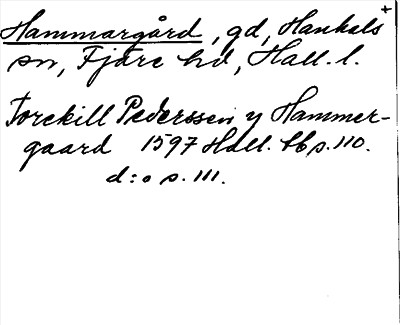 Hammargård, gd, Hanhals +
sn, Fjäre hd, Hall. l.
Torckill Pederssen y Hammer-
gaard 1597 Hall. Lb s. 110.
d:o s. 111.